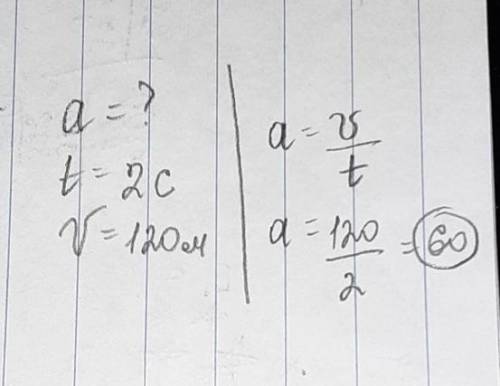 a = ?
t = 2 с
v = 120 м
a = v/t
a = 120/2 = 60